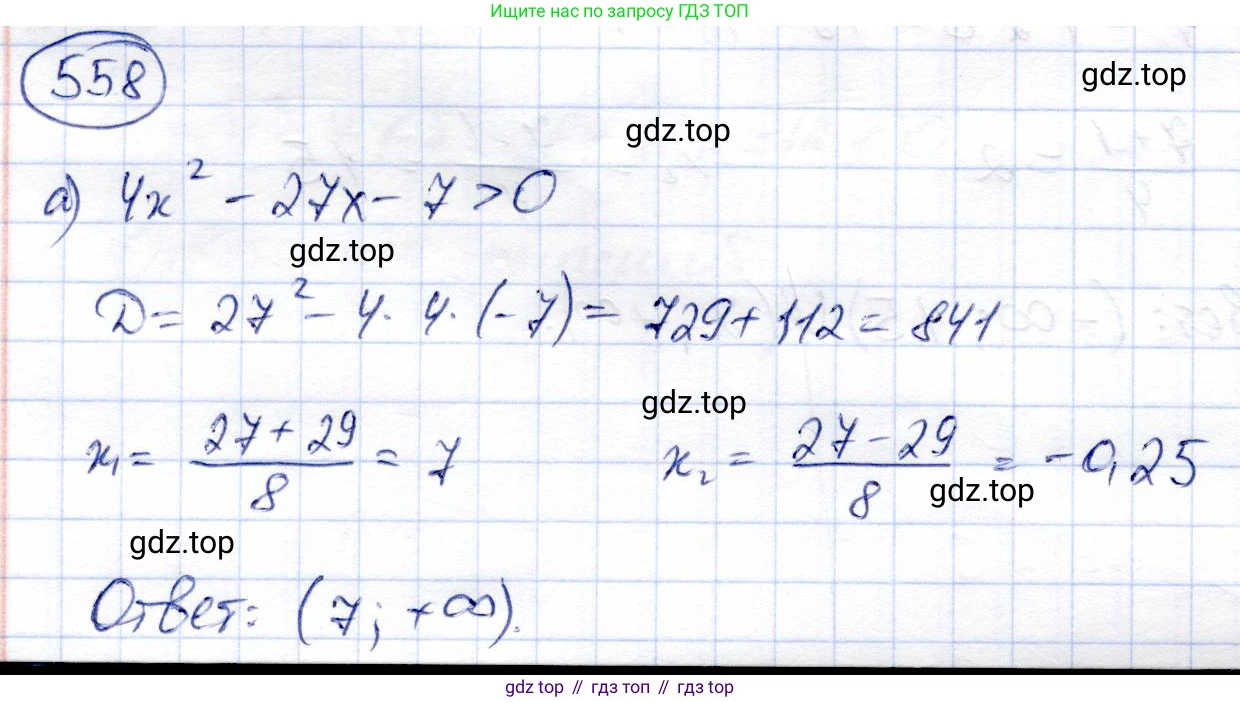 Ищите нас по запросу ГДЗ ТОП
558
gdz.top
gdz.top
а) 4x² - 27x - 7 > 0
gdz.top
D = 27² - 4 · 4 · (-7) = 729 + 112 = 841
gdz.top
x₁ = (27 + 29)/8 = 7    x₂ = (27 - 29)/8 = -0,25
gdz.top
gdz.top
Ответ: (7; +∞).
gdz top // гдз топ // гдз top